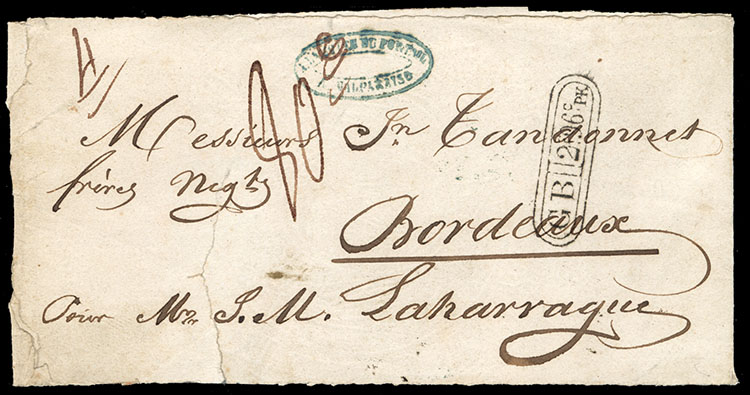 VALPARAISO
Messieurs Jn Tandonnet
frères Negts
GB 2F 86 6/10c PK
Bordeaux
Pour Mr J. M. Laharrague